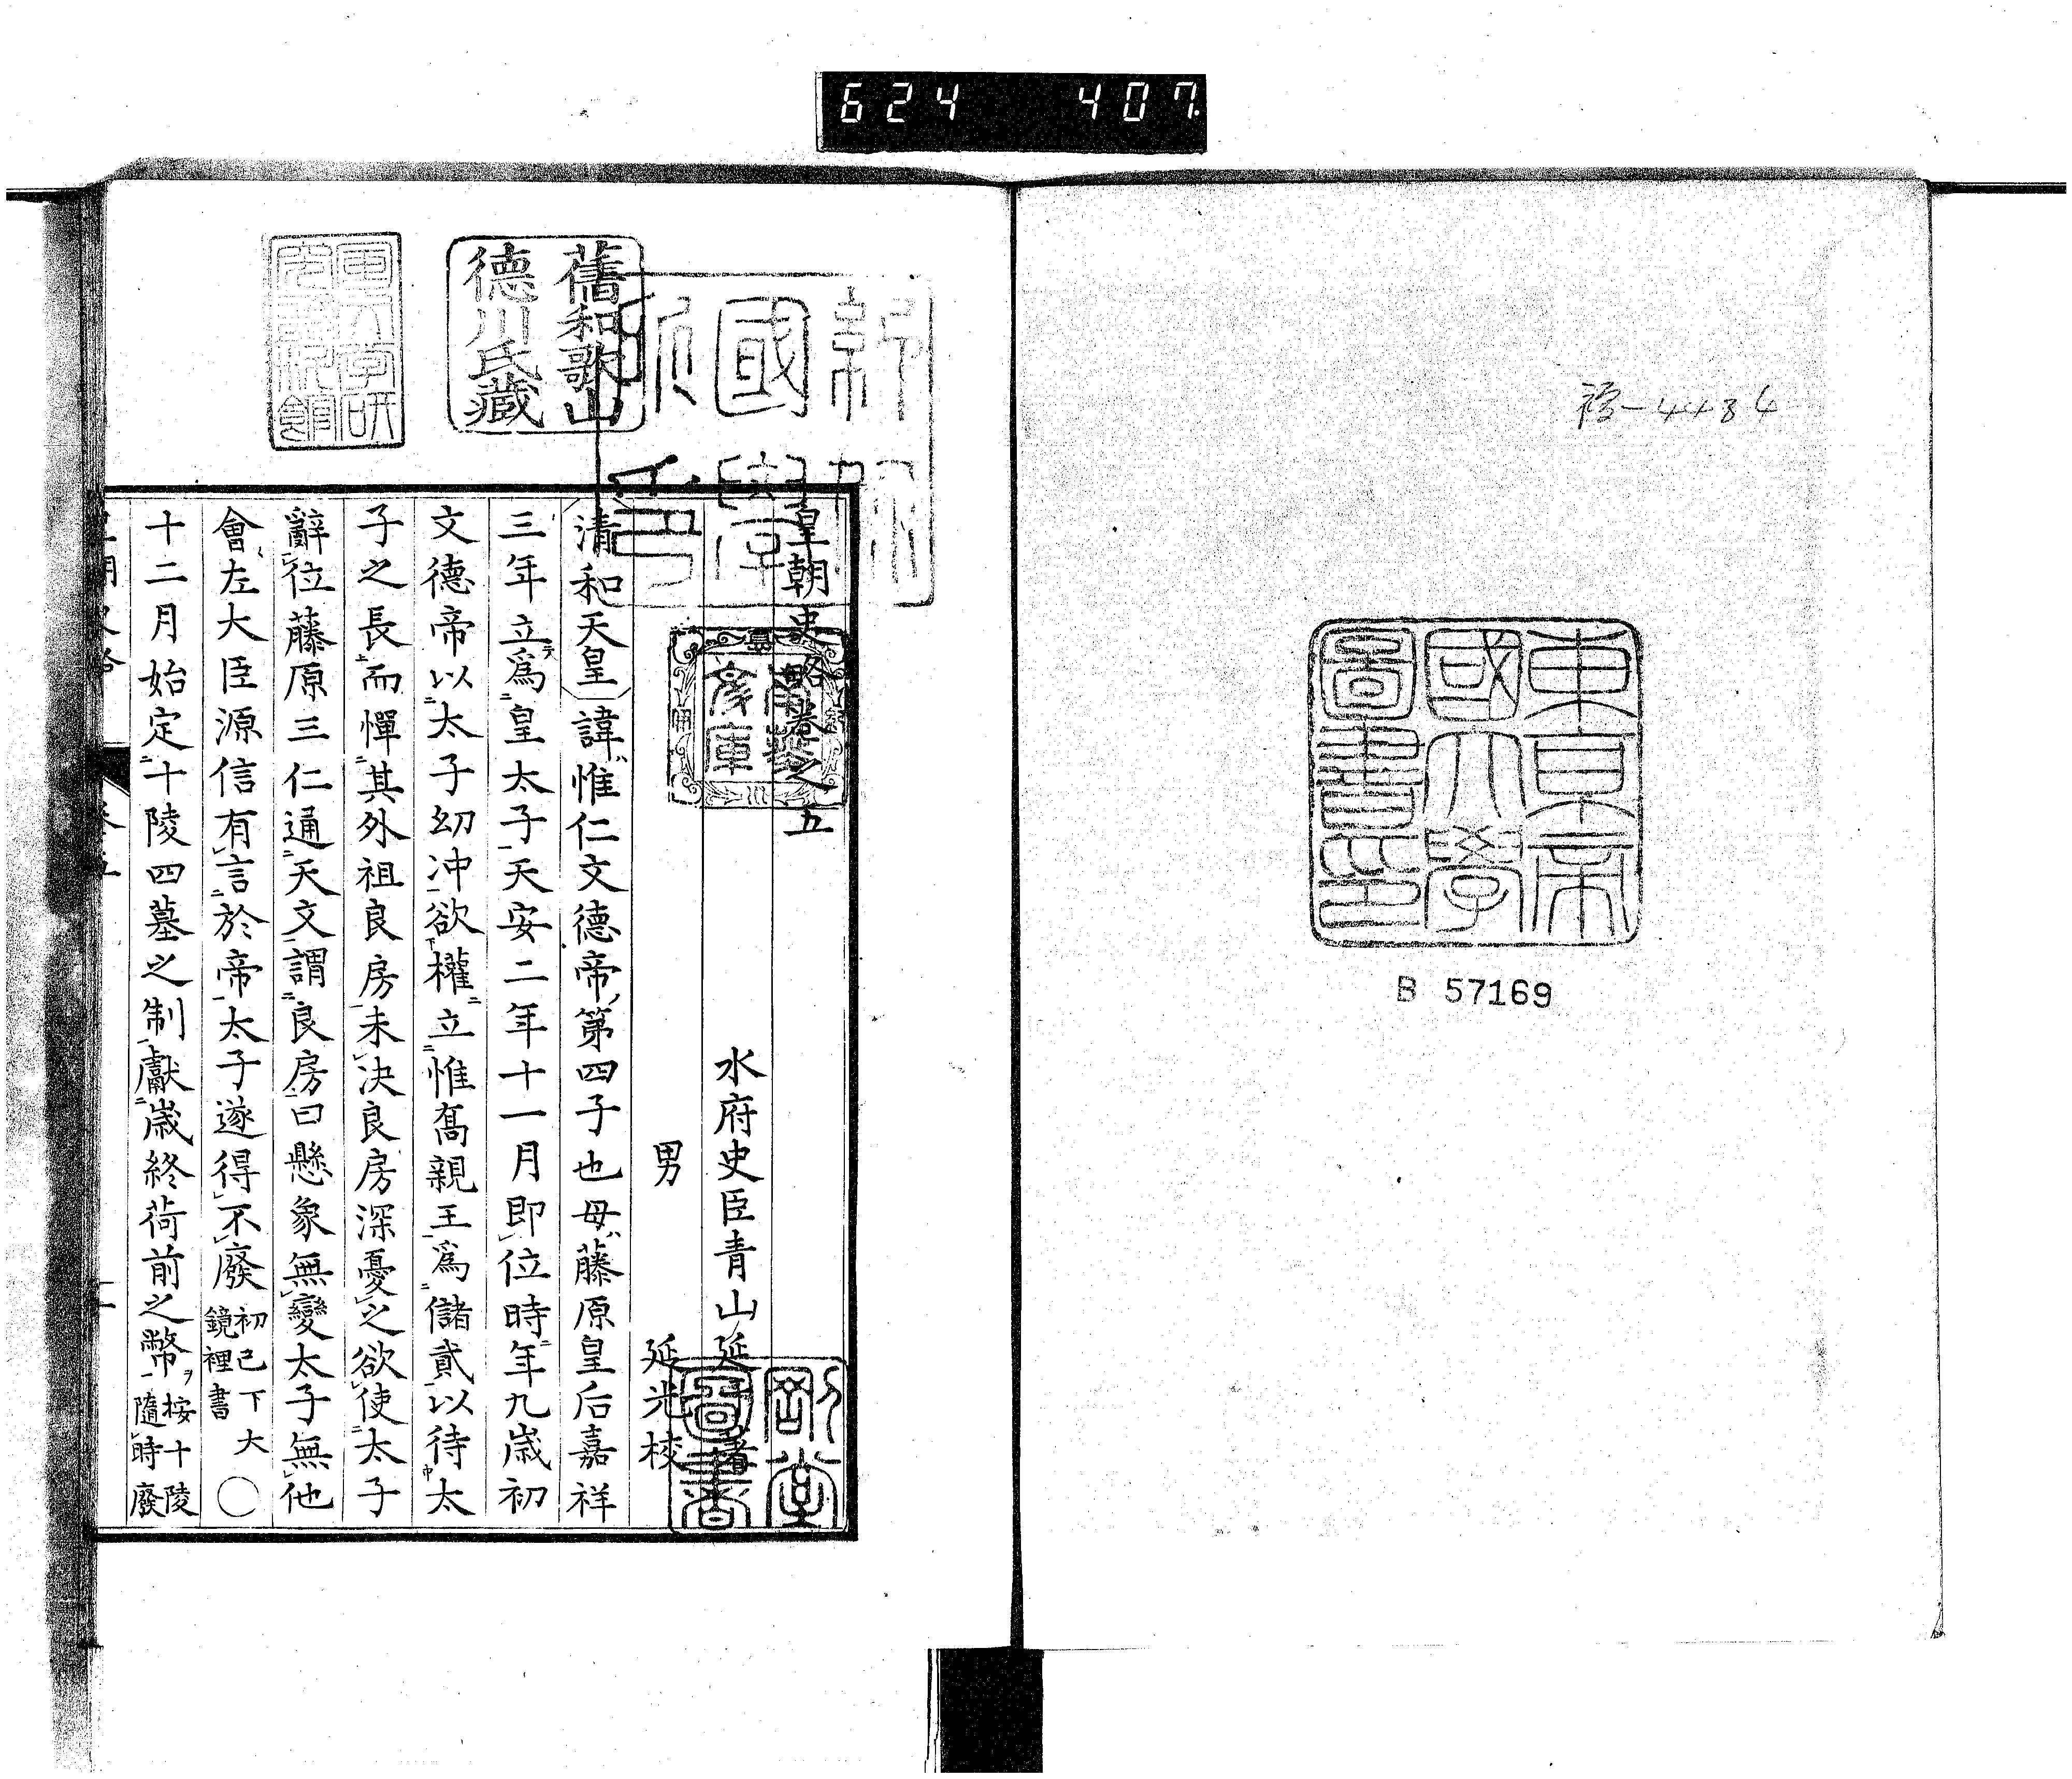 624 407
稽-4484
東京帝
國大學
圖書印
B 57169
舊和歌山
德川氏藏
剛堂
圖書
皇朝史略卷之五
水府史臣青山延于著
男 延光校
清和天皇諱惟仁文德帝第四子也母藤原皇后嘉祥
三年立爲皇太子天安二年十一月即位時年九歲初
文德帝以太子幼冲欲權立惟喬親王爲儲貳以待太
子之長而憚其外祖良房未決良房深憂之欲使太子
辭位藤原三仁通天文謂良房曰懸象無變太子無他
會左大臣源信有言於帝太子遂得不廢初已下大鏡裡書〇
十二月始定十陵四墓之制獻歲終荷前之幣按十陵隨時廢